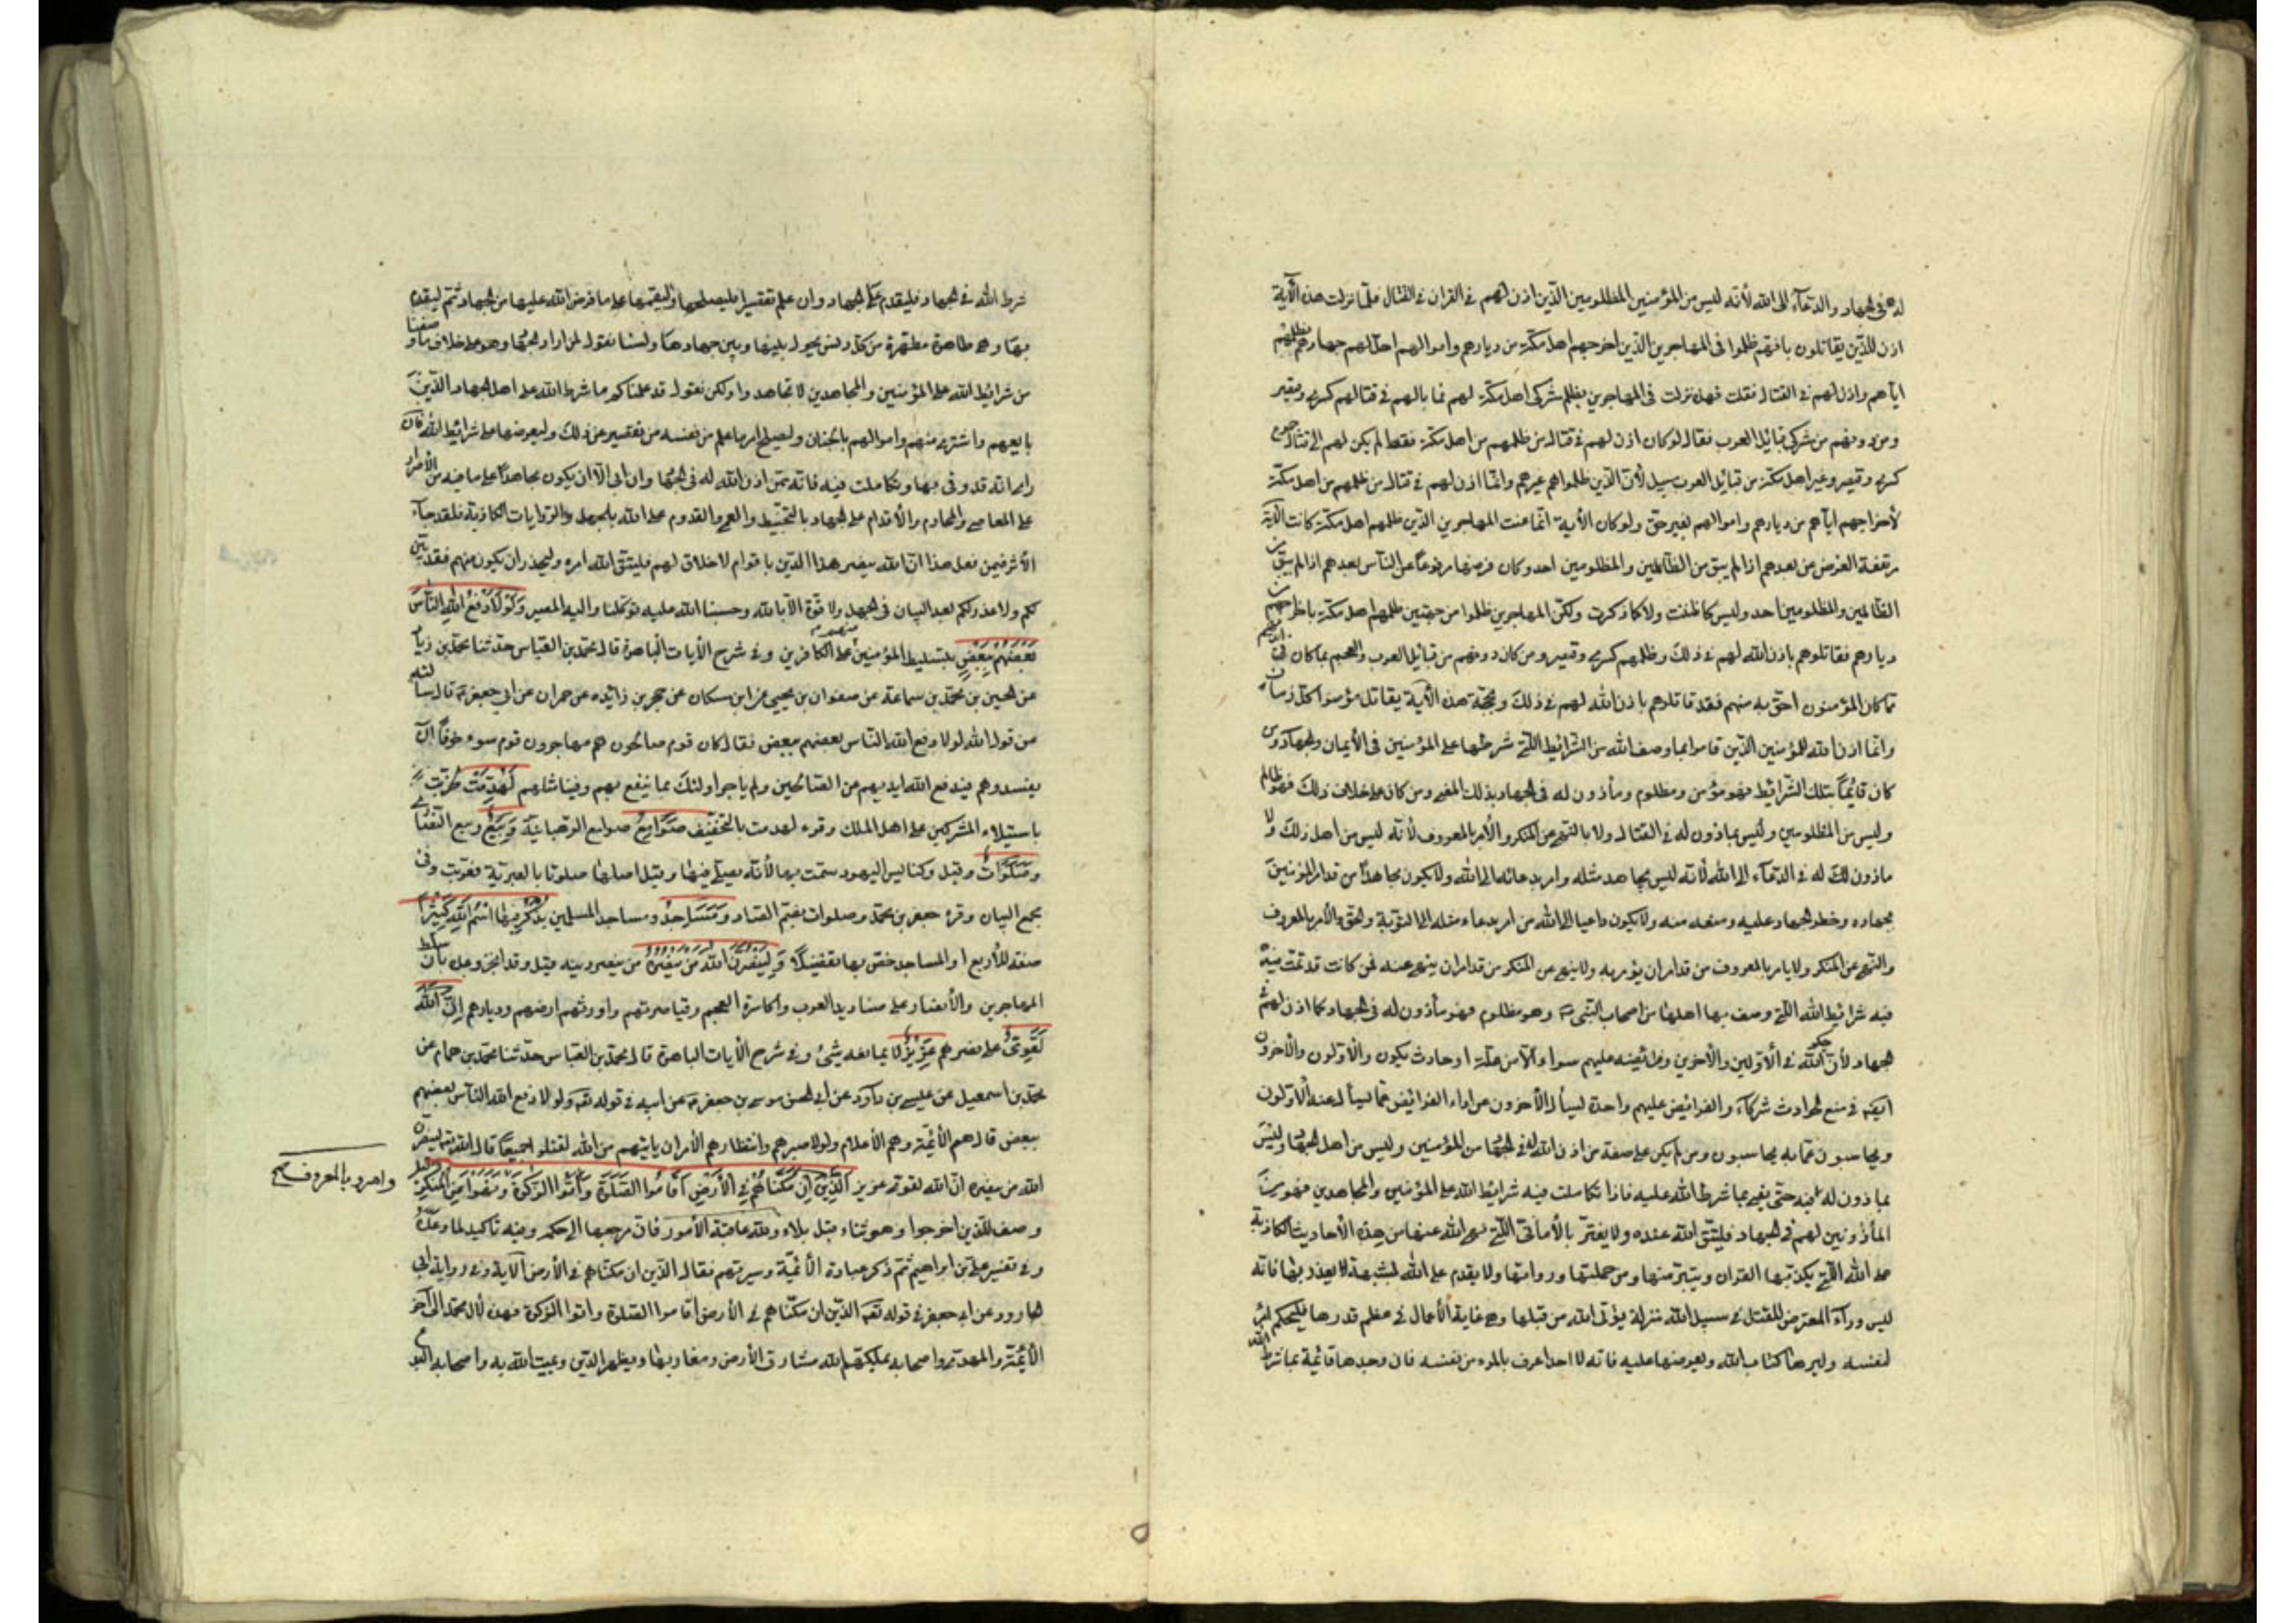 له فى الجهاد والدعآء الى الله لأنه ليس من المؤمنين المظلومين الذين اذن لهم فى القران فى القتال فلما نزلت هذه الآية
اذن للذين يقاتلون بانهم ظلموا فى المهاجرين الذين اخرجهم اهل مكة من ديارهم واموالهم احل لهم جهادهم بظلمهم
اياهم واذن لهم فى القتال فقلت فهذه نزلت فى المهاجرين بظلم مشركى اهل مكة لهم فما بالهم فى قتالهم كسرى وقيصر
ومن دونهم من مشركى قبائل العرب فقال لو كان اذن لهم فى قتال من ظلمهم من اهل مكة فقط لم يكن لهم الى قتال جموع
كسرى وقيصر وغير اهل مكة من قبائل العرب سبيل لأن الذين ظلموهم غيرهم وانما اذن لهم فى قتال من ظلمهم من اهل مكة
لأخراجهم اياهم من ديارهم واموالهم بغير حق ولو كان الأية انما عنت المهاجرين الذين ظلمهم اهل مكة كانت الآية
مرتفعة الفرض عن بعدهم اذا لم يبق من الظالمين والمظلومين احد وكان فرضها مرفوعا عن الناس بعدهم اذا لم يبق من
الظالمين والمظلومين احد وليس كما ظننت ولا كما ذكرت ولكن المهاجرين ظلموا من جهتين ظلمهم اهل مكة باخراجهم من
ديارهم فقاتلوهم باذن الله لهم فى ذلك وظلمهم كسرى وقيصر ومن كان دونهم من قبائل العرب والعجم بما كان فى ايديهم
مما كان المؤمنون احق به منهم فقد قاتلوهم باذن الله لهم فى ذلك وبحجة هذه الآية يقاتل مؤمنوا كل زمان
وانما اذن الله للمؤمنين الذين قاموا بما وصف الله من الشرائط التى شرطها على المؤمنين فى الأيمان والجهاد ومن
كان قائما بتلك الشرائط فهو مؤمن ومظلوم ومأذون له فى الجهاد بذلك المعنى ومن كان على خلاف ذلك فهو ظالم
وليس من المظلومين وليس بماذون له فى القتال ولا بالنهى عن المنكر والأمر بالمعروف لأنه ليس من اهل ذلك ولا
ماذون له فى الدعآء الى الله لأنه ليس يجاهد مثله وامر بدعائه الى الله ولا يكون مجاهدا من قد امر المؤمنين
بجهاده وحظر الجهاد عليه ومنعه منه ولا يكون داعيا الى الله من امر بدعاء مثله الى التوبة والحق والأمر بالمعروف
والنهى عن المنكر ولا يامر بالمعروف من قد امر ان يؤمر به ولا ينهى عن المنكر من قد امر ان ينهى عنه فمن كانت قد تمت فيه
فيه شرائط الله التى وصف بها اهلها من اصحاب النبى وهو مظلوم فهو مأذون له فى الجهاد كما اذن لهم فى
الجهاد لأن حكم الله فى الأولين والأخرين وفرائضه عليهم سواء الا من علة او حادث يكون والأولون والأخرون
ايضا فى منع الحوادث شركآء والفرائض عليهم واحدة يسأل الأخرون عن اداء الفرائض عما يسأل عنه الأولون
ويحاسبون عما به يحاسبون ومن لم يكن على صفة من اذن الله له فى الجهاد من المؤمنين وليس من اهل الجهاد وليس
بماذون له فيه حتى يفى بما شرط الله عليه فاذا تكاملت فيه شرائط الله على المؤمنين والمجاهدين فهو من
المأذونين لهم فى الجهاد فليتق الله عبده ولا يغتر بالأمانى التى نهى الله عنها من هذه الأحاديث الكاذبة
على الله التى يكذبها القران ويتبرء منها ومن حملتها ورواتها ولا يقدم على الله بشبهة لا يعذر بها فانه
ليس وراء المتعرض للقتل فى سبيل الله منزلة يؤتى الله من قبلها وهى غاية الأعمال فى عظم قدرها فليحكم امرء
لنفسه وليرها كتاب الله ويعرضها عليه فانه لا احد اعرف بالمرء من نفسه فان وجدها قائمة بما شرط الله
شرط الله فى الجهاد فليقدم على الجهاد وان علم تقصيرا فليصلحها وليقمها على ما فرض الله عليها من الجهاد ثم ليقدم
بها وهى طاهرة مطهرة من كل دنس يحول بينها وبين جهادها ولسنا نقول لمن اراد الجهاد وهو على خلاف ما وصفنا
من شرائط الله على المؤمنين والمجاهدين لا تجاهدوا ولكن نقول قد علمناكم ما شرط الله على اهل الجهاد الذين
بايعهم واشترى منهم واموالهم بالجنان وليصلح امرء ما علم من نفسه من تقصير عن ذلك وليعرضها على شرائط الله فان
راى انه قد وفى بها وتكاملت فيه فانه ممن اذن الله له فى الجهاد وان ابى الا ان يكون مجاهدا على ما فيه من الأصرار
على المعاصى والمحارم والأقدام على الجهاد بالتخبيط والعمى والقدوم على الله بالجهل والروايات الكاذبة فلقد جآء
الأثر فيمن فعل هذا ان الله ينصر هذا الدين باقوام لا خلاق لهم فليتق الله امرء وليحذر ان يكون منهم فقد بين
لكم ولا عذر لكم بعد البيان فى الجهل ولا قوة الا بالله وحسبنا الله عليه توكلنا واليه المصير وَلَوْلَا دَفْعُ اللهِ النَّاسَ
بَعْضَهُم بِبَعْضٍ بتسليط المؤمنين منهم على الكافرين وفى شرح الأيات الباهرة قال محمد بن العباس حدثنا محمد بن زياد
عن الحسين بن محمد بن سماعة عن صفوان بن يحيى عن ابن مسكان عن حجر بن زائده عن حمران عن ابى جعفر قال سألته
عن قول الله لولا دفع الله الناس بعضهم ببعض فقال كان قوم صالحون هم مهاجرون قوم سوء خوفا ان
يفسدوهم فيدفع الله ايديهم عن الصالحين ولم ياجر اولئك بما يدفع بهم وفينا مثلهم لَهُدِّمَتْ خربت
باستيلاء المشركين على اهل الملل وقرء لهدمت بالتخفيف صَوَامِعُ صوامع الرهبانية وَبِيَعٌ وبيع النصارى
وَصَلَوَاتٌ وقيل وكنائس اليهود سمت بها لأنه يصلى فيها وقيل اصلها صلوتا بالعبرية فعربت وفى
مجمع البيان وقرء جعفر بن محمد وصلوات بضم الصاد وَمَسَاجِدُ ومساجد المسلمين يُذْكَرُ فِيهَا اسْمُ اللهِ كَثِيرًا
صفة للأربع او المساجد خصت بها تفضيلا وَلَيَنْصُرَنَّ اللهُ مَنْ يَنْصُرُهُ من ينصر دينه قيل وقد انجز وعده بأن سلط
المهاجرين والأنصار على صناديد العرب واكاسرة العجم وقياصرتهم واورثهم ارضهم وديارهم اِنَّ اللهَ
لَقَوِىٌّ على نصرهم عَزِيزٌ لا يمانعه شئ وفى شرح الأيات الباهرة قال محمد بن العباس حدثنا محمد بن همام عن
محمد بن اسمعيل عن عيسى بن داود عن ابى الحسن موسى بن جعفر عن ابيه فى قوله تعه ولولا دفع الله الناس بعضهم
ببعض قال هم الأئمة وهم الأعلام ولولا صبرهم وانتظارهم الأمر ان ياتيهم من الله لقتلوا جميعا قال الله تعه ولينصرن
الله من ينصره ان الله لقوى عزيز اَلَّذِينَ اِنْ مَكَّنَّاهُمْ فِى الْأَرْضِ اَقَامُوا الصَّلٰوةَ وَآتَوُا الزَّكٰوةَ وَنَهَوْا عَنِ الْمُنْكَرِ
وامروا بالمعروف صح
وصف للذين اخرجوا وهو ثناء قبل بلاء ولله عاقبة الأمور فان مرجعها الى حكمه وفيه تاكيد لما وعده
وفى تفسير على بن ابراهيم ثم ذكر عبادة الأئمة وسيرتهم فقال الذين ان مكناهم فى الأرض الآية وفى رواية ابى
الجارود عن ابى جعفر فى قوله تعه الذين ان مكناهم فى الأرض اقاموا الصلوة واتوا الزكوة فهذه لأل محمد الى آخر
الأئمة والمهدى واصحابه يملكهم الله مشارق الأرض ومغاربها ويظهر الدين ويميت الله به واصحابه البدع